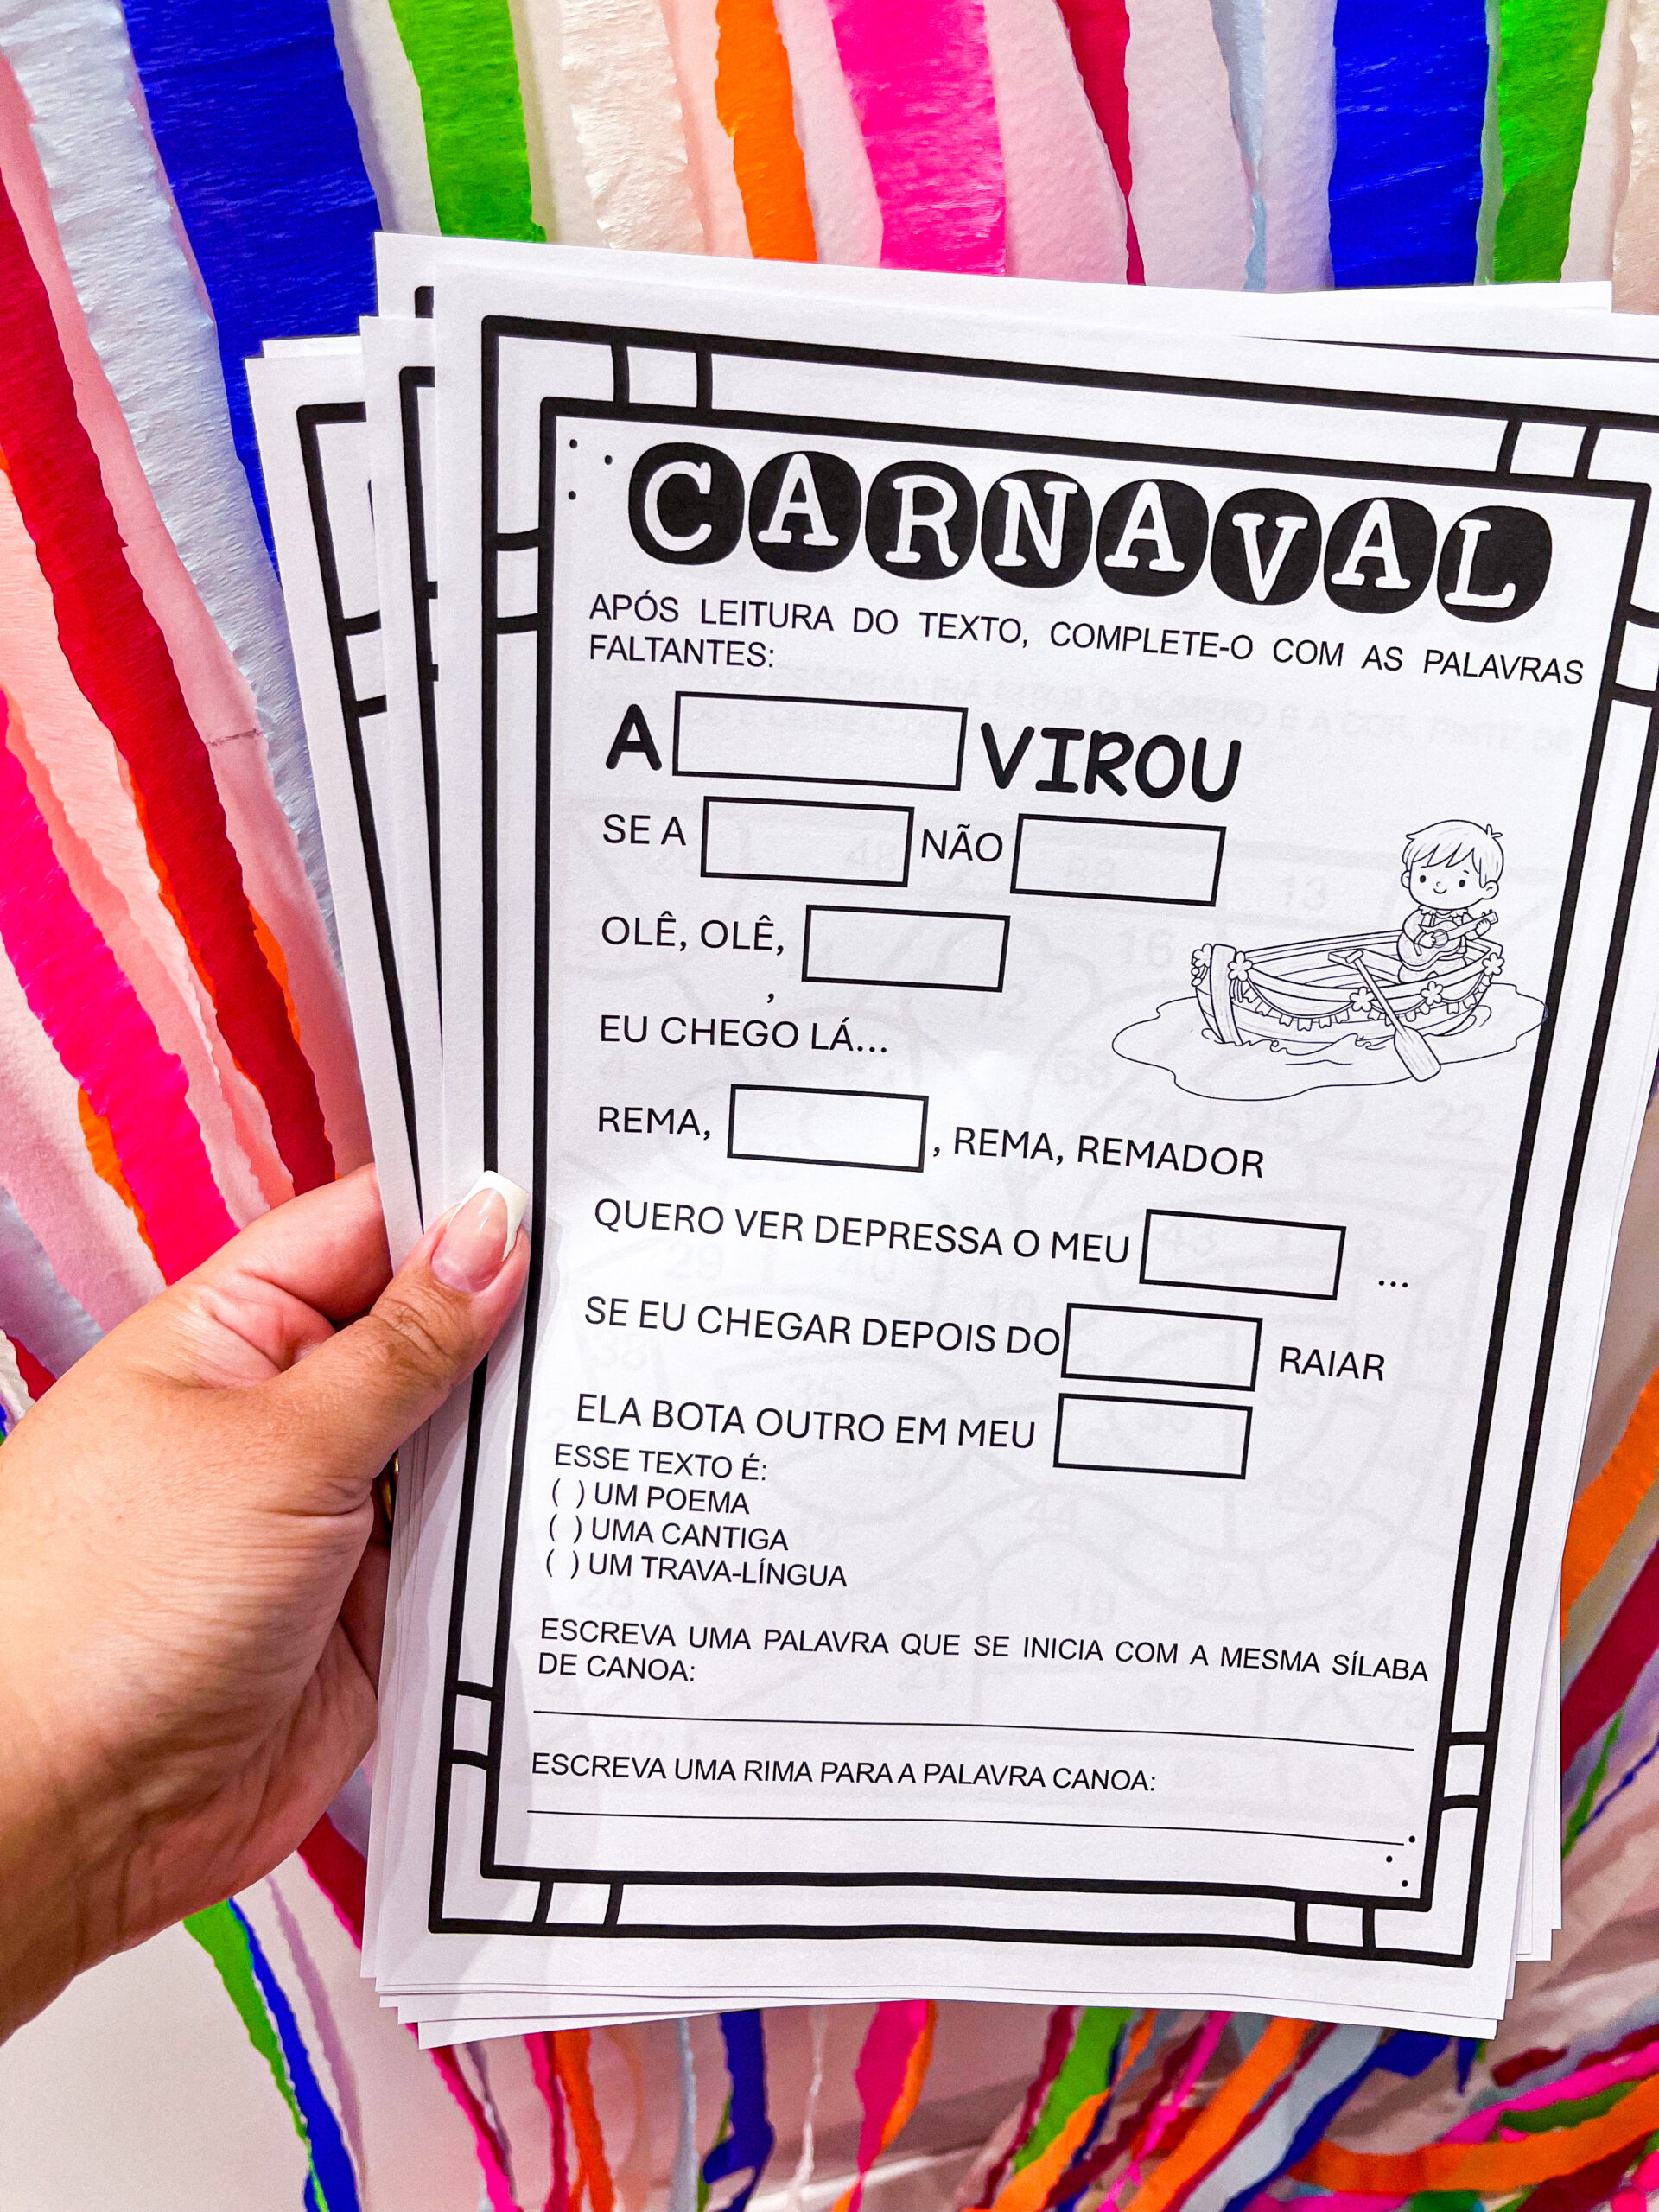 CARNAVAL
APÓS LEITURA DO TEXTO, COMPLETE-O COM AS PALAVRAS
FALTANTES:
A VIROU
SE A NÃO
OLÊ, OLÊ,
,
EU CHEGO LÁ...
REMA, , REMA, REMADOR
QUERO VER DEPRESSA O MEU ...
SE EU CHEGAR DEPOIS DO RAIAR
ELA BOTA OUTRO EM MEU
ESSE TEXTO É:
( ) UM POEMA
( ) UMA CANTIGA
( ) UM TRAVA-LÍNGUA
ESCREVA UMA PALAVRA QUE SE INICIA COM A MESMA SÍLABA
DE CANOA:
ESCREVA UMA RIMA PARA A PALAVRA CANOA: